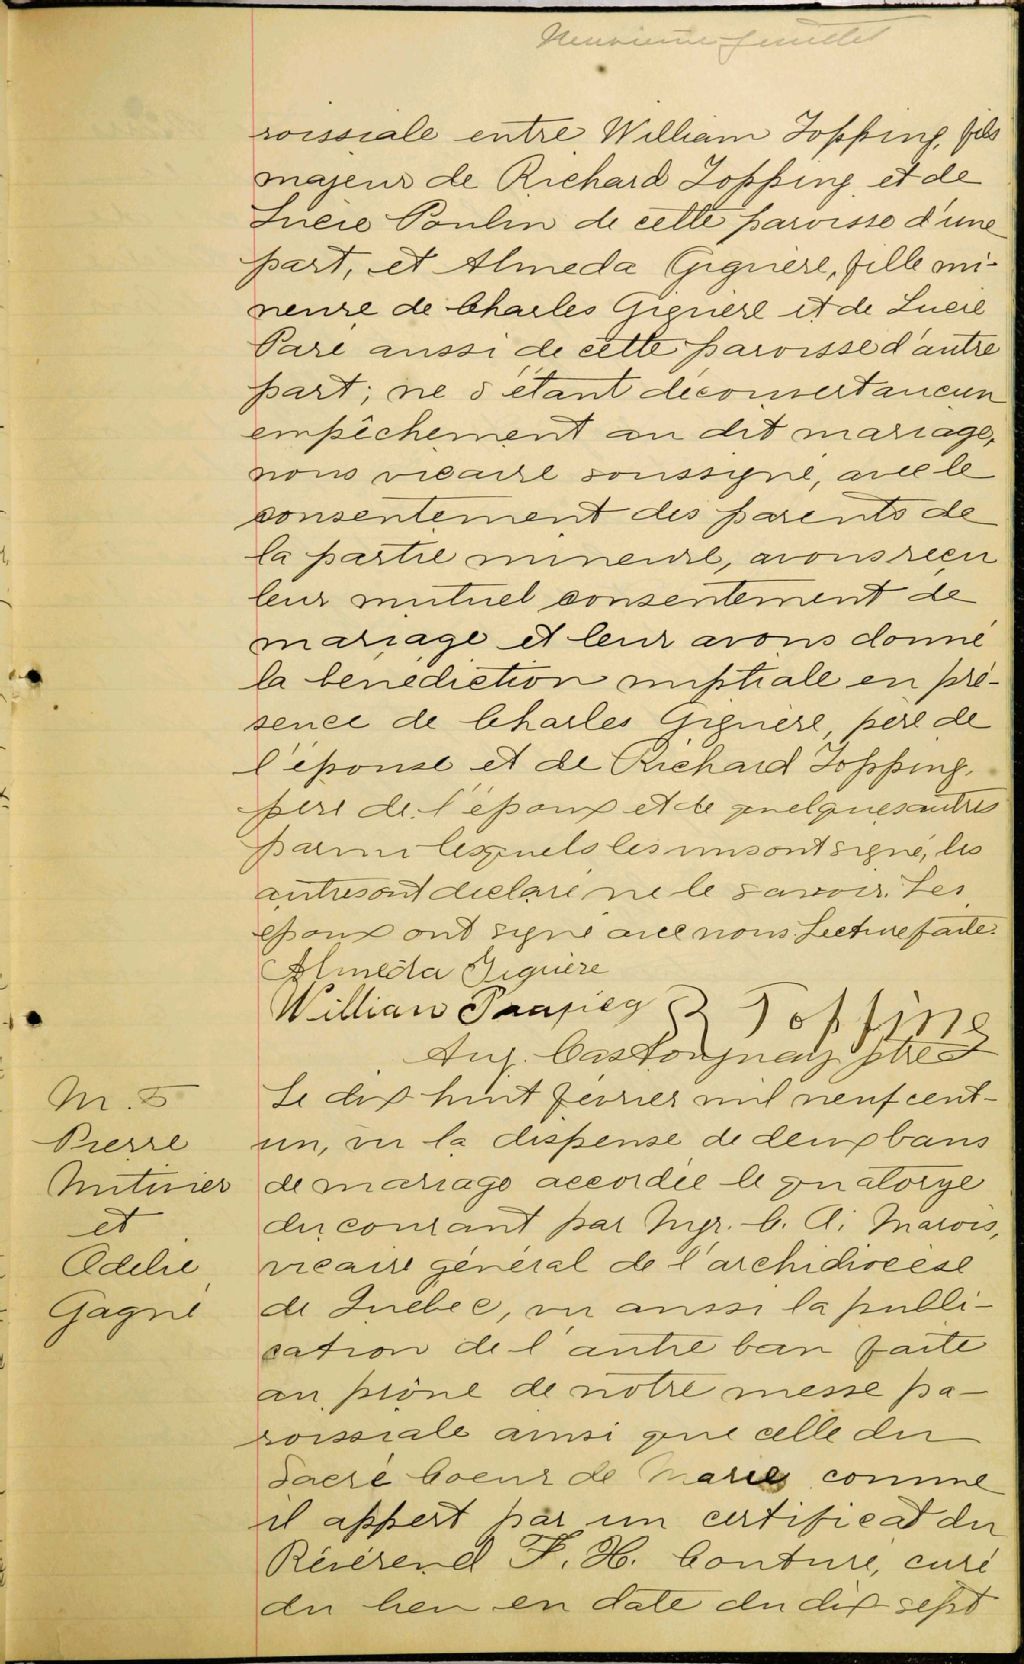 Neuvième feuillet
roissiale entre William Topping, fils
majeur de Richard Topping et de
Lucie Poulin de cette paroisse d'une
part, et Almeda Giguère, fille mi-
neure de Charles Giguère et de Lucie
Paré aussi de cette paroisse d'autre
part; ne s'étant découvert aucun
empêchement au dit mariage,
nous vicaire soussigné, avec le
consentement des parents de
la partie mineure, avons reçu
leur mutuel consentement de
mariage et leur avons donné
la bénédiction nuptiale en pré-
sence de Charles Giguère, père de
l'épouse et de Richard Topping,
père de l'époux et de quelques autres
parmi lesquels les uns ont signé, les
autres ont déclaré ne le savoir. Les
époux ont signé avec nous. Lecture faite.
Almeda Giguère
William R Topping
Aug. Castonguay ptre
M. 5
Pierre
Mitivier
et
Adelie
Gagné
Le dix huit février mil neuf cent-
un, vu la dispense de deux bans
de mariage accordée le quatorze
du courant par Mgr. C. A. Marois,
vicaire général de l'archidiocèse
de Québec, vu aussi la publi-
cation de l'autre ban faite
au prône de notre messe pa-
roissiale ainsi que celle du
Sacré Coeur de Marie comme
il appert par un certificat du
Révérend F. H. Couture, curé
du lieu en date du dix sept